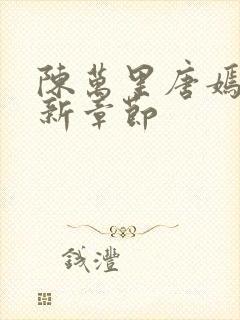 陳萬里唐嫣
新章節
錢灃